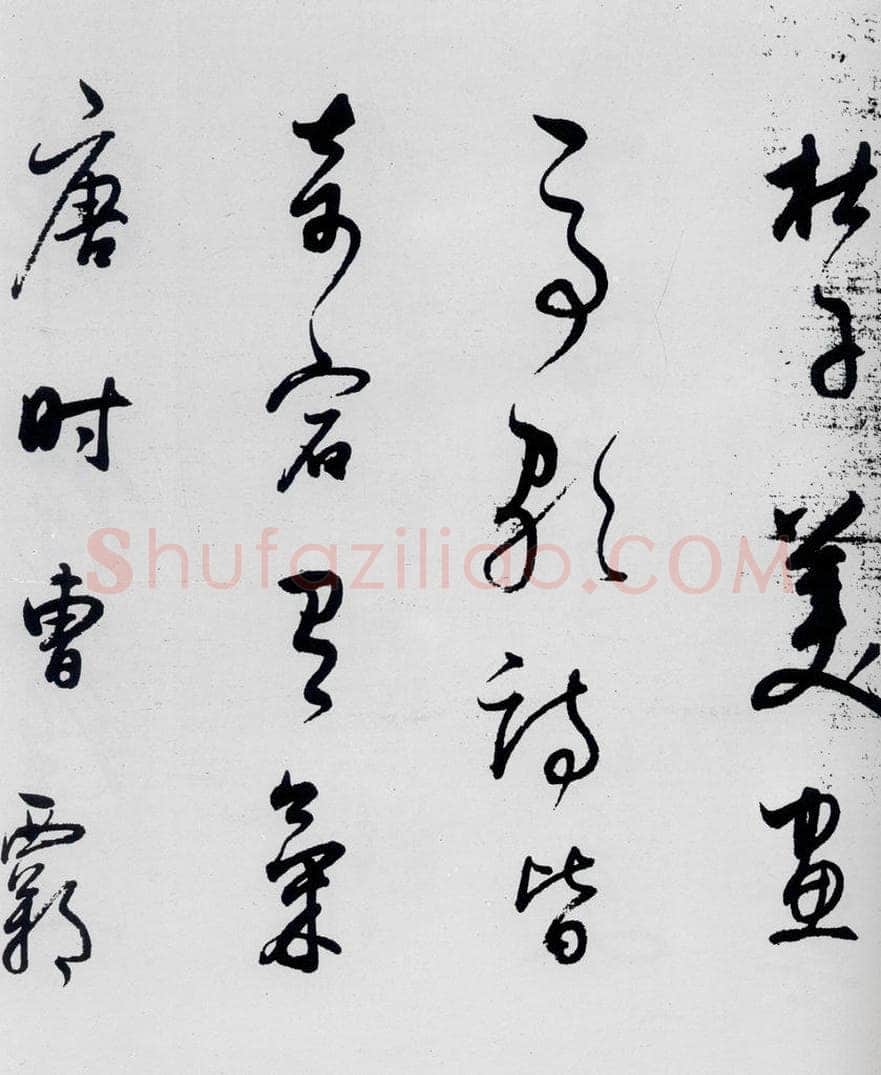 杜子美畫
馬歌詩皆
奇宕有氣
唐时曹霸
Shufaziliao.COM